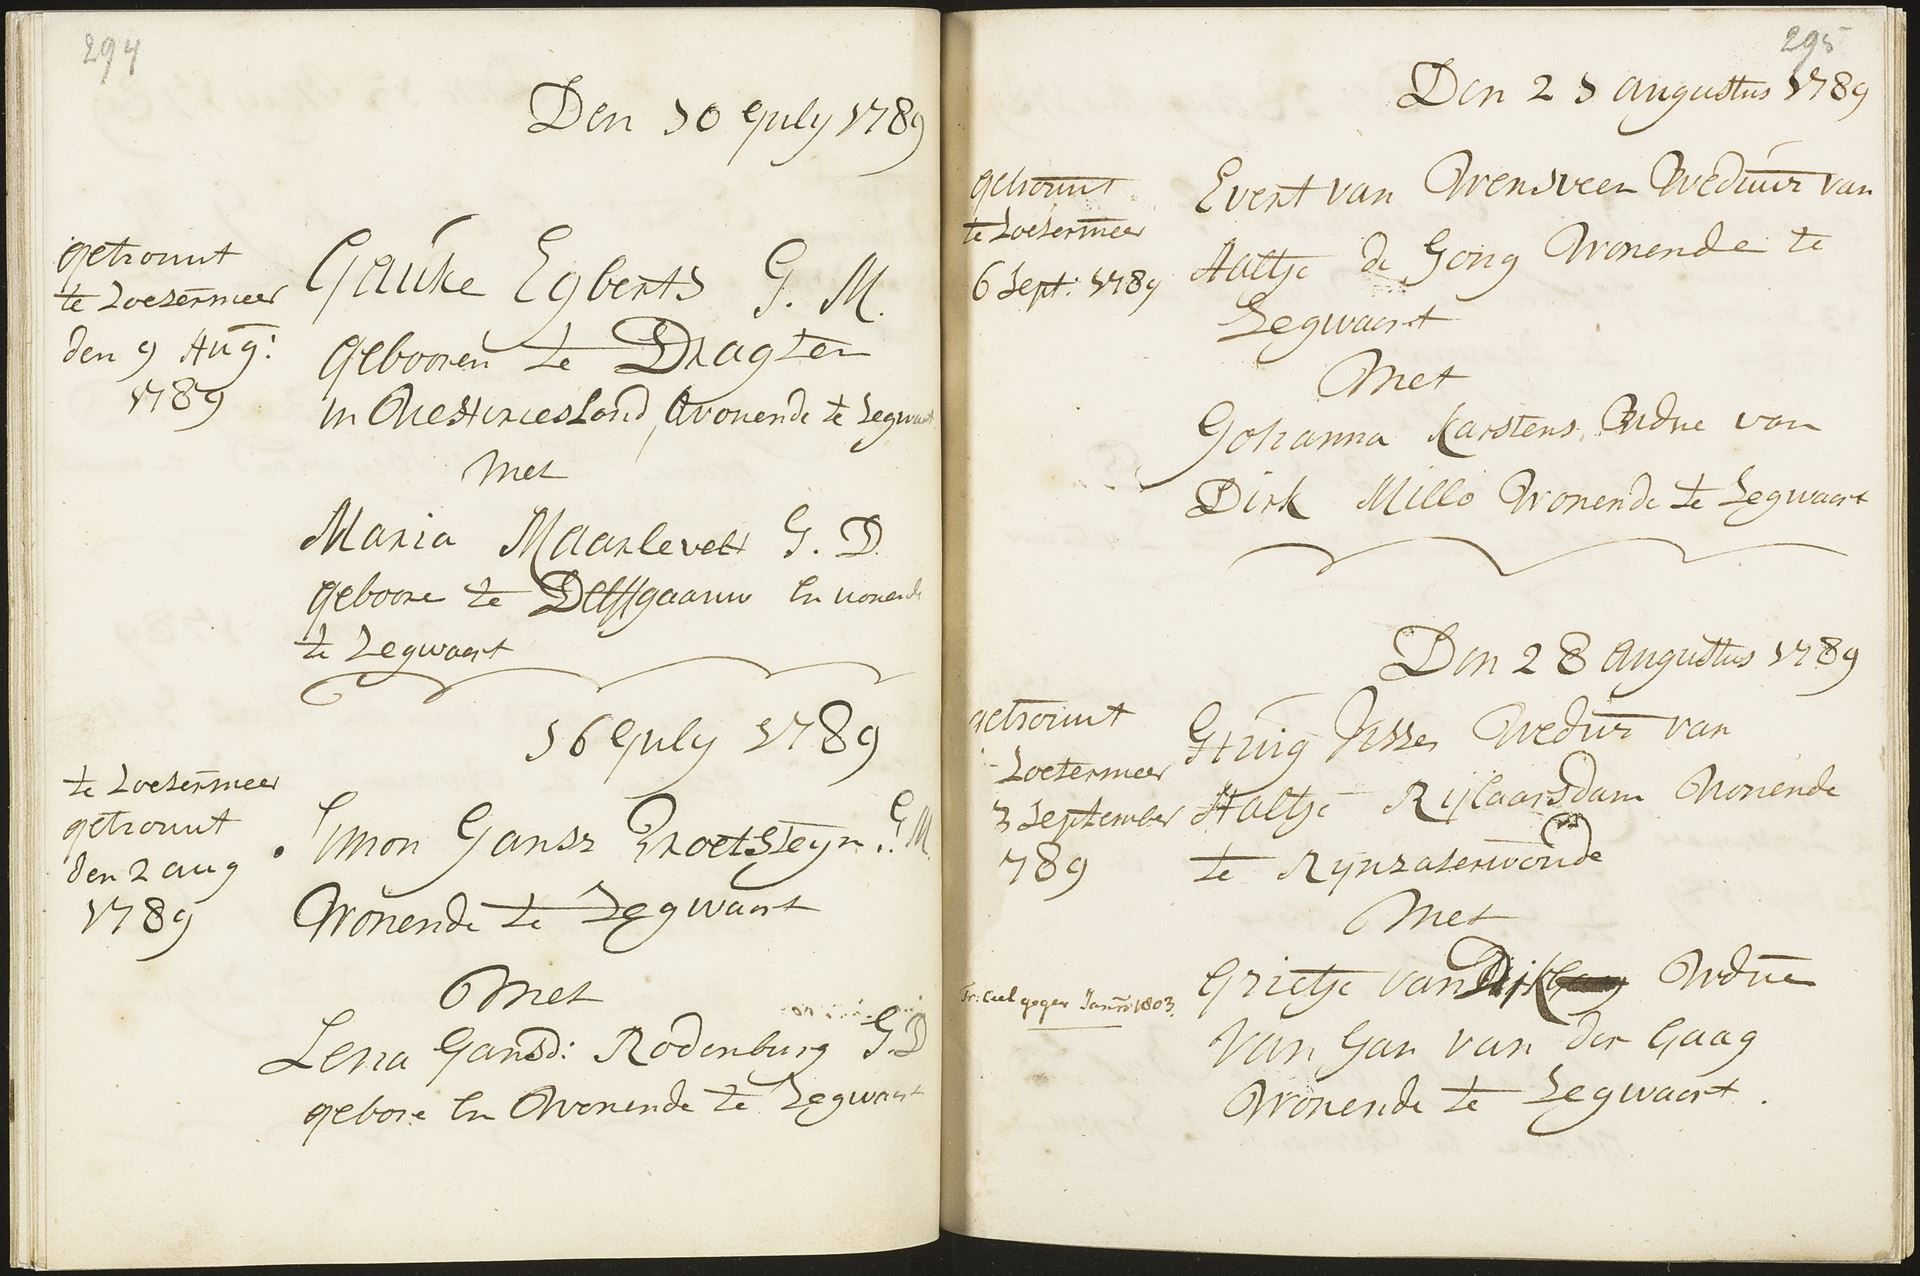 294
Den 10 July 1789
getrouwt
te Zoetermeer
den 9 Aug:
1789
Gauke Egberts J. M.
Gebooren te Dragten
in Westvriesland, Wonende te Zegwaart
Met
Maria Maarlevelt J. D.
geboore te Delffgaauw En wonende
te Zegwaart
16 July 1789
te Zoetermeer
getrouwt
den 2 aug
1789
Simon Jansz Grootsteyn J. M.
Wonende te Zegwaart
Met
Lena Jansd: Rodenburg J. D
gebore En Wonende te Zegwaart
295
Den 21 augustus 1789
getrouwt
te Zoetermeer
6 Sept: 1789
Evert van Wensveen Weduur van
Aaltje de Jong Wonende te
Zegwaart
Met
Johanna Karstens Wdue van
Dirk Millo Wonende te Zegwaart
Den 28 augustus 1789
getrouwt
Zoetermeer
3 September
789
Huig Visser Wedur van
Aaltje Rijlaarsdam Wonende
te Rynzaterwoude
Met
Grietje van Dijk Wdue
Van Jan van der Gaag
Wonende te Zegwaart.
1803